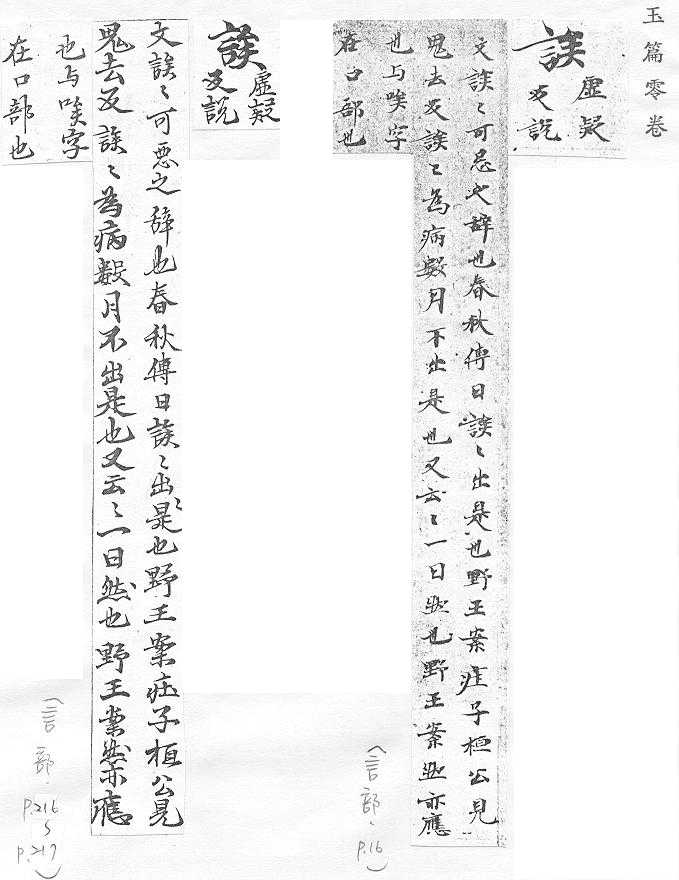 玉篇零卷
誒
虛疑
反說
文誒〻可忌之辞也春秋傳曰誒〻出是也野王案疰子桓公見
鬼去反誒〻為病數月不出是也又云〻一曰然也野王案然亦應
也与唉字
在口部也
(言部. P.16)
誒
虛疑
反說
文誒〻可悪之辞也春秋傳曰誒〻出〻是也野王案疰子桓公見
鬼去反誒〻為病數月不出是也又云〻一曰然也野王案然亦應
也与唉字
在口部也
(言部. P.216
〜
P.217)